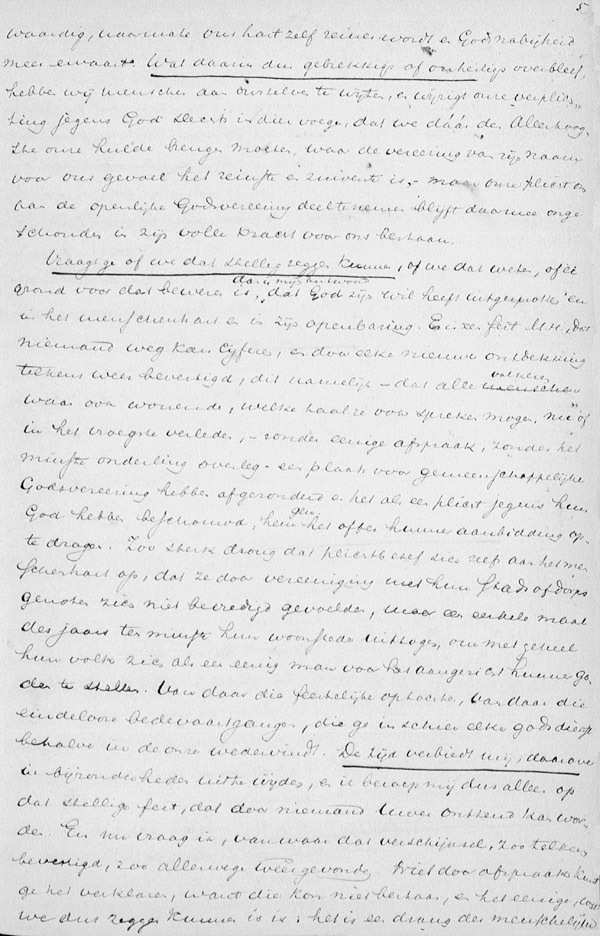 5
waardig, naarmate ons hart zelf reiner wordt en Gods nabijheid
meer ervaart. Wat daarin dus gebrekkigs of onheiligs overbleef,
hebben wij menschen aan ons zelven te wijten, en wijzigt onze verplich-
ting jegens God slechts in dier voege, dat we dáár den Allerhoog-
ste onze hulde brengen moeten, waar de vereering van zijn naam
voor ons gevoel het reinste en zuiverst is, - maar onze plicht om
aan de openlijke Godsvereering deel te nemen blijft daarmee onge-
schonden in zijn volle kracht voor ons bestaan.
Vraagt ge of we dat stellig zeggen kunnen, of we dat weten, of er
daar is mijn antwoord
grond voor dat beweren is, dat God zijn wil heeft uitgesproken en
in het menschenhart en in zijn openbaring. Er is een feit M.H., dat
niemand weg kan cyferen, en door elke nieuwe ontdekking
telkens weer bevestigd, dit namelijk - dat alle menschen
volkeren
waar ook wonende, welke taal ze ook spreken mogen, nu of
in het vroegste verleden, - zonder eenige afspraak, zonder het
minste onderling overleg - een plaats voor gemeenschappelijke
Godsvereering hebben afgezonderd en het als een plicht jegens hun
God hebben beschouwd, hem het offer hunner aanbidding op-
te dragen. Zoo sterk drong dat plichtbesef zich zelf aan het men
schenhart op, dat ze door vereeniging met hun Stads of dorps
genoten zich niet bevredigd gevoelden, maar een enkele maal
des jaars ten minste hun woonsteden uittogen, om met geheel
hun volk zich als een eenig man voor het aangezicht hunner go
den te stellen. Van daar die feestelijke optochten, van daar die
eindelooze bedevaartgangen, die ge in schier elke godsdienst
behalve in de onze wedervindt. De tijd verbiedt mij, daarover
in bijzonderheden uit te wijden, en ik beroep mij dus alleen op
dat stellige feit, dat door niemand Uwer ontkend kan wor-
den. En nu vraag ik, van waar dat verschijnsel, zoo telkens
bevestigd, zoo allerwege weergevonden. Niet door afspraak kunt
ge het verklaren, want die kon niet bestaan, en het eenige, wat
we dus zeggen kunnen is: het is een drang der menschelijke